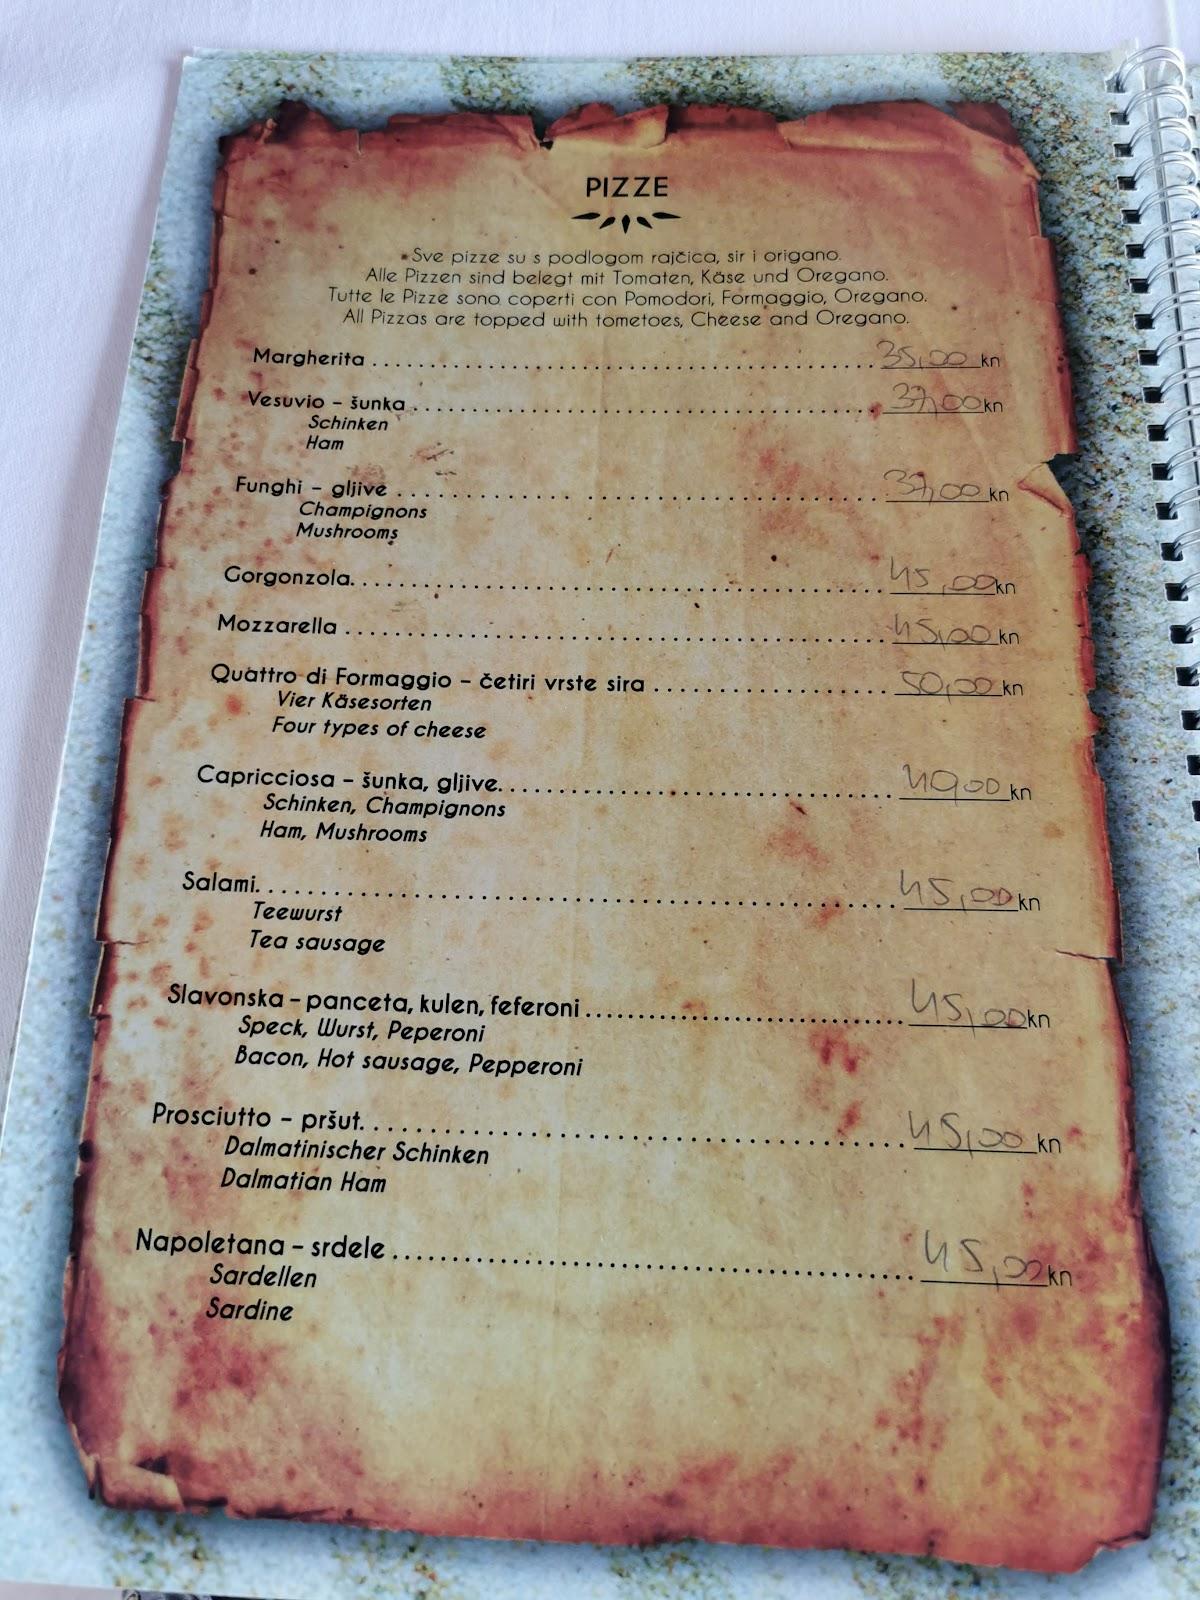 PIZZE
Sve pizze su s podlogom rajčica, sir i origano.
Alle Pizzen sind belegt mit Tomaten, Käse und Oregano.
Tutte le Pizze sono coperti con Pomodori, Formaggio, Oregano.
All Pizzas are topped with tometoes, Cheese and Oregano.
Margherita 35,00 kn
Vesuvio – šunka 37,00 kn
Schinken
Ham
Funghi – gljive 37,00 kn
Champignons
Mushrooms
Gorgonzola 45,00 kn
Mozzarella 45,00 kn
Quattro di Formaggio – četiri vrste sira 50,00 kn
Vier Käsesorten
Four types of cheese
Capricciosa – šunka, gljive kn
Schinken, Champignons
Ham, Mushrooms
Salami 45,00 kn
Teewurst
Tea sausage
Slavonska – panceta, kulen, feferoni 45,00 kn
Speck, Wurst, Peperoni
Bacon, Hot sausage, Pepperoni
Prosciutto – pršut 45,00 kn
Dalmatinischer Schinken
Dalmatian Ham
Napoletana – srdele 45,00 kn
Sardellen
Sardine